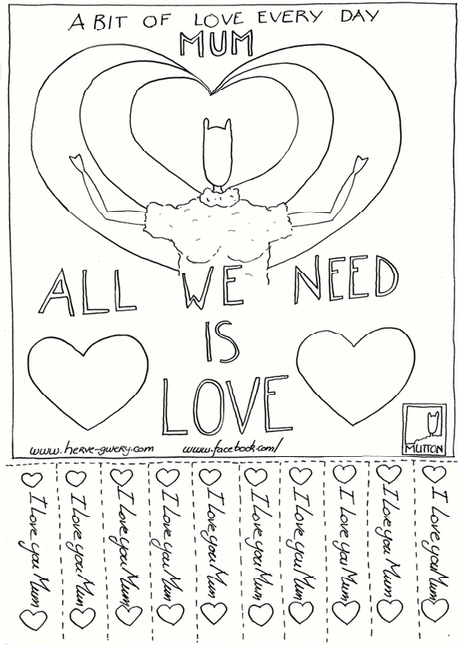 A BIT OF LOVE EVERY DAY
MUM
ALL WE NEED
IS
LOVE
MUTTON
www.herve-gwery.com www.facebook.com/
I love you Mum
I love you Mum
I love you Mum
I love you Mum
I love you Mum
I love you Mum
I love you Mum
I love you Mum
I love you Mum
I love you Mum